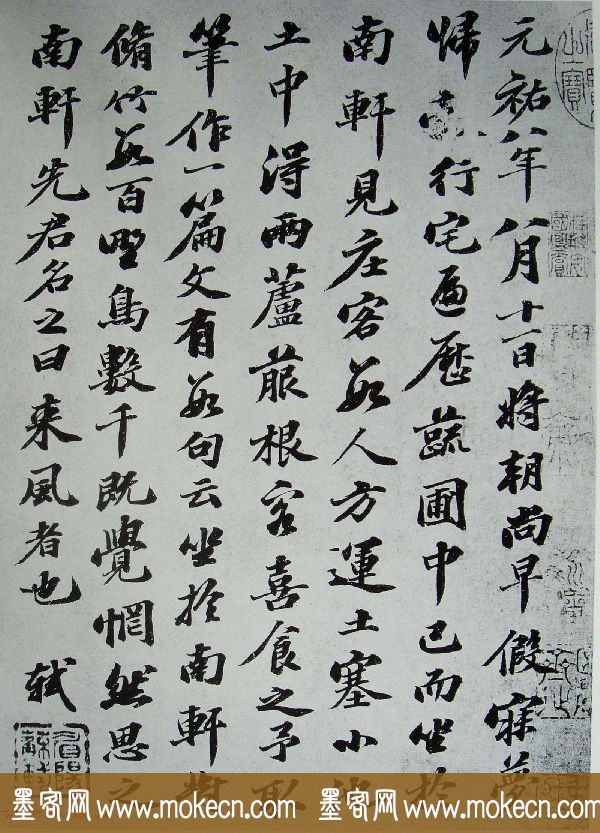 元祐八年八月十一日將朝尚早假寐夢
歸行宅遍歷蔬圃中已而坐於
南軒見庄客數人方運土塞小池
土中得兩蘆菔根客喜食之予取
筆作一篇文有數句云坐於南軒對
脩竹數百野鳥數千既覺惘然思之
南軒先君名之曰来風者也 軾
墨客网 www.mokecn.com 墨客网 www.mokecn.com